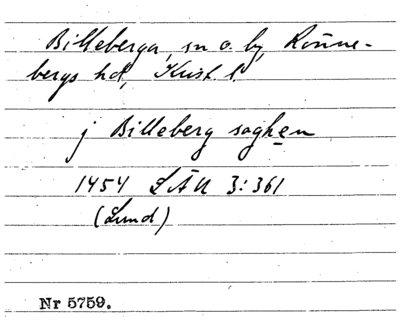 Billeberga, sn o. by, Rönne-
bergs hd, Krist. l.
j Billeberg soghen
1454 LÄU 3:361
(Lund)
Nr 5759.